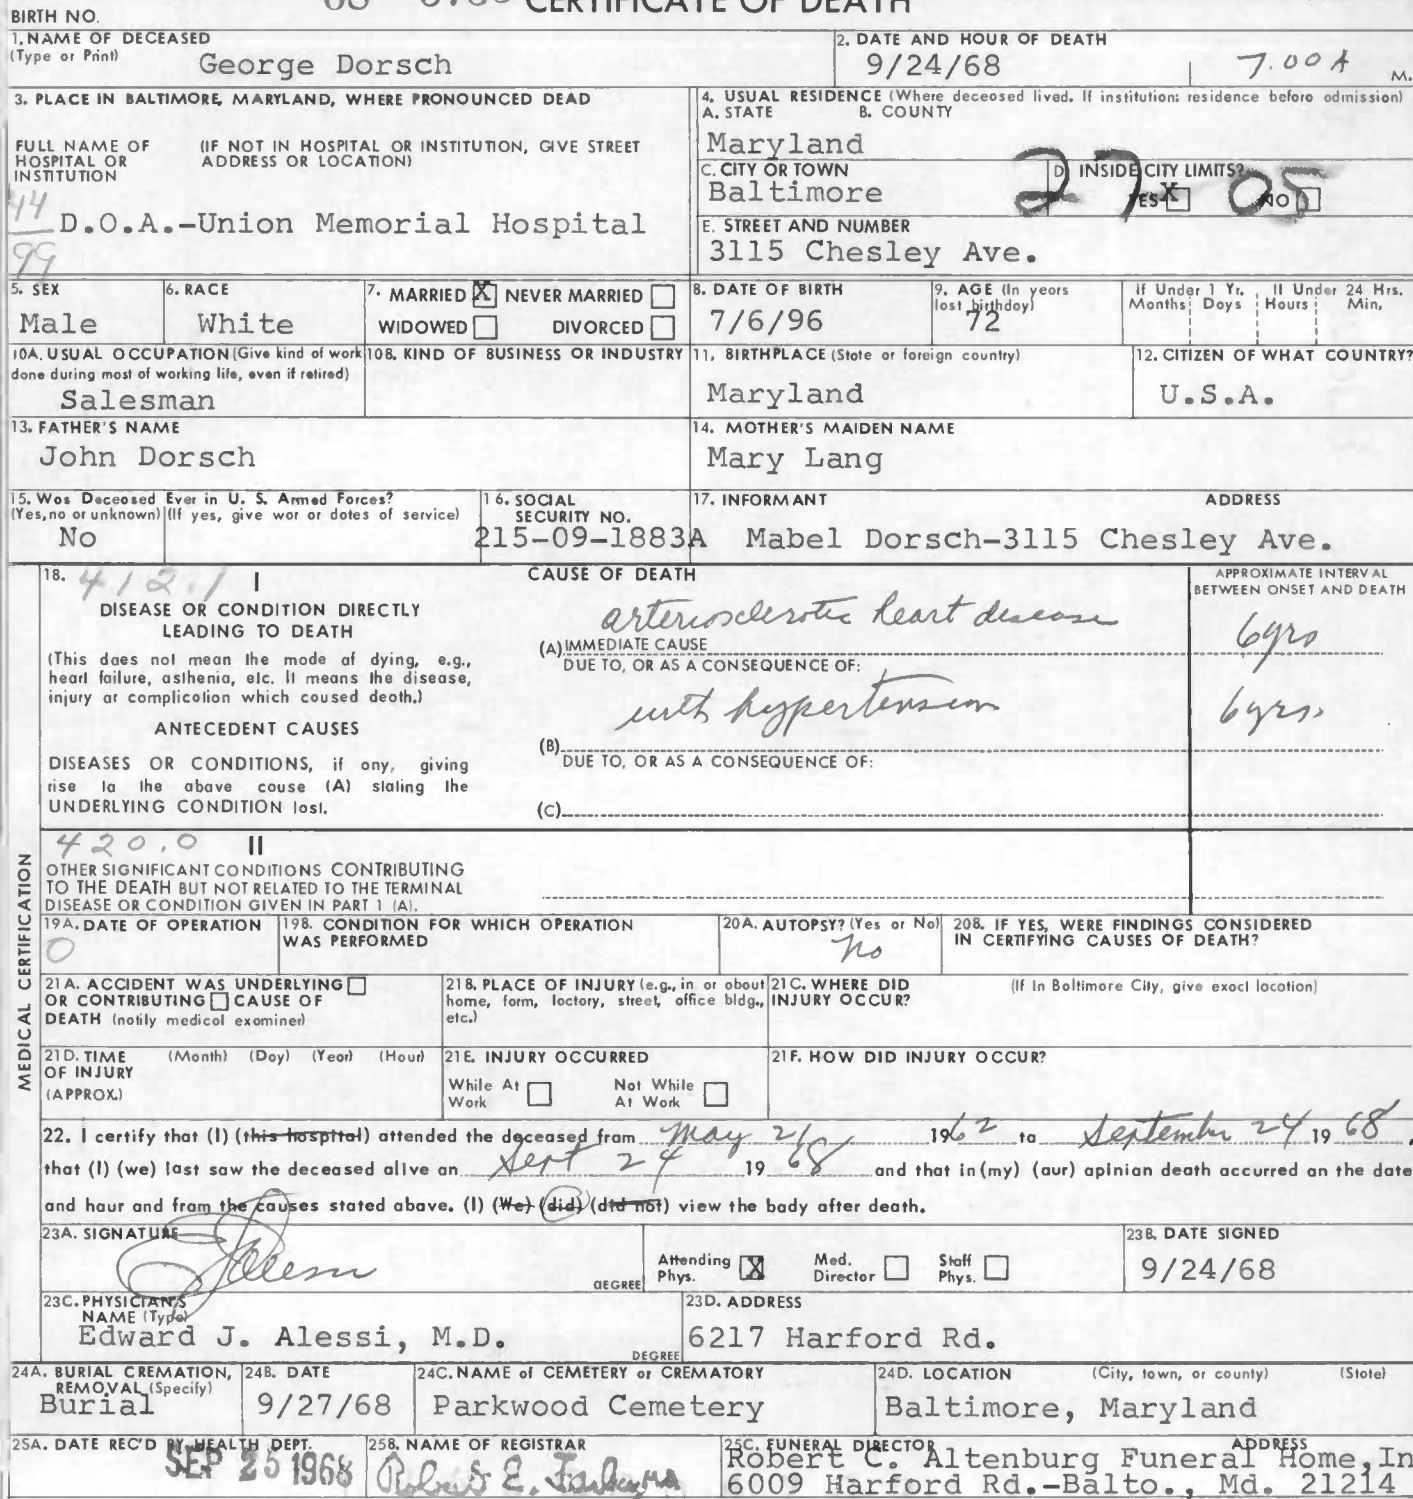 CERTIFICATE OF DEATH
BIRTH NO.
1. NAME OF DECEASED
(Type or Print)
George Dorsch
2. DATE AND HOUR OF DEATH
9/24/68 7.00 A M.
3. PLACE IN BALTIMORE, MARYLAND, WHERE PRONOUNCED DEAD
FULL NAME OF HOSPITAL OR INSTITUTION
(IF NOT IN HOSPITAL OR INSTITUTION, GIVE STREET ADDRESS OR LOCATION)
44
99
D.O.A.-Union Memorial Hospital
4. USUAL RESIDENCE (Where deceased lived. If institution: residence before admission)
A. STATE B. COUNTY
Maryland
C. CITY OR TOWN
Baltimore
D. INSIDE CITY LIMITS?
YES X NO
27 05
E. STREET AND NUMBER
3115 Chesley Ave.
5. SEX
Male
6. RACE
White
7. MARRIED X NEVER MARRIED
WIDOWED DIVORCED
8. DATE OF BIRTH
7/6/96
9. AGE (In years last birthday)
72
If Under 1 Yr. Months Days
If Under 24 Hrs. Hours Min.
10A. USUAL OCCUPATION (Give kind of work done during most of working life, even if retired)
Salesman
10B. KIND OF BUSINESS OR INDUSTRY
11. BIRTHPLACE (State or foreign country)
Maryland
12. CITIZEN OF WHAT COUNTRY?
U.S.A.
13. FATHER'S NAME
John Dorsch
14. MOTHER'S MAIDEN NAME
Mary Lang
15. Was Deceased Ever in U. S. Armed Forces?
(Yes, no or unknown) (If yes, give war or dates of service)
No
16. SOCIAL SECURITY NO.
215-09-1883A
17. INFORMANT ADDRESS
Mabel Dorsch-3115 Chesley Ave.
MEDICAL CERTIFICATION
18. 412.1 I
DISEASE OR CONDITION DIRECTLY
LEADING TO DEATH
(This does not mean the mode of dying, e.g.,
heart failure, asthenia, etc. It means the disease,
injury or complication which caused death.)
ANTECEDENT CAUSES
DISEASES OR CONDITIONS, if any, giving
rise to the above cause (A) stating the
UNDERLYING CONDITION last.
CAUSE OF DEATH
arteriosclerotic heart disease
(A) IMMEDIATE CAUSE
DUE TO, OR AS A CONSEQUENCE OF:
with hypertension
(B)
DUE TO, OR AS A CONSEQUENCE OF:
(C)
APPROXIMATE INTERVAL
BETWEEN ONSET AND DEATH
6 yrs
6 yrs.
420.0 II
OTHER SIGNIFICANT CONDITIONS CONTRIBUTING
TO THE DEATH BUT NOT RELATED TO THE TERMINAL
DISEASE OR CONDITION GIVEN IN PART 1 (A).
19A. DATE OF OPERATION
0
19B. CONDITION FOR WHICH OPERATION WAS PERFORMED
20A. AUTOPSY? (Yes or No)
no
20B. IF YES, WERE FINDINGS CONSIDERED IN CERTIFYING CAUSES OF DEATH?
21A. ACCIDENT WAS UNDERLYING
OR CONTRIBUTING CAUSE OF
DEATH (notify medical examiner)
21B. PLACE OF INJURY (e.g., in or about home, farm, factory, street, office bldg., etc.)
21C. WHERE DID INJURY OCCUR?
(If in Baltimore City, give exact location)
21D. TIME OF INJURY (APPROX.)
(Month) (Day) (Year) (Hour)
21E. INJURY OCCURRED
While At Work Not While At Work
21F. HOW DID INJURY OCCUR?
22. I certify that (I) (this hospital) attended the deceased from May 21 1962 to September 24 1968,
that (I) (we) last saw the deceased alive on Sept 24 1968 and that in (my) (our) opinion death occurred on the date
and hour and from the causes stated above. (I) (We) (did) (did not) view the body after death.
23A. SIGNATURE
DEGREE
Attending Phys. X Med. Director Staff Phys.
23B. DATE SIGNED
9/24/68
23C. PHYSICIAN'S NAME (Type)
Edward J. Alessi, M.D.
DEGREE
23D. ADDRESS
6217 Harford Rd.
24A. BURIAL CREMATION, REMOVAL (Specify)
Burial
24B. DATE
9/27/68
24C. NAME of CEMETERY or CREMATORY
Parkwood Cemetery
24D. LOCATION (City, town, or county) (State)
Baltimore, Maryland
25A. DATE REC'D BY HEALTH DEPT.
SEP 25 1968
25B. NAME OF REGISTRAR
Robert E. Farber, MD
25C. FUNERAL DIRECTOR ADDRESS
Robert C. Altenburg Funeral Home, In
6009 Harford Rd.-Balto., Md. 21214